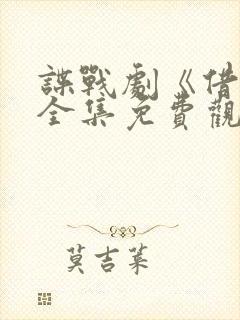 諜戰劇《借
全集免費觀
莫吉萊